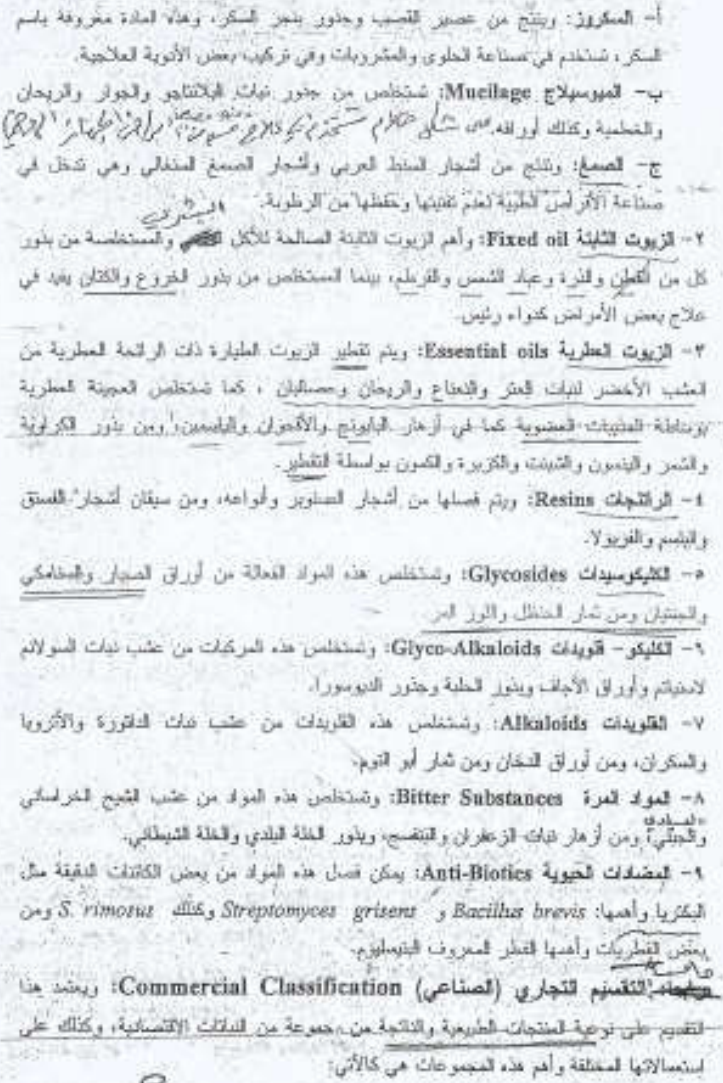 أ- السكروز: وينتج من عصير القصب وجذور بنجر السكر، وهذه المادة معروفة باسم
السكر، تستخدم في صناعة الحلوى والمشروبات وفي تركيب بعض الأدوية العلاجية.
ب- الميوسيلاج Mucilage: تستخلص من جذور نبات البلانتاجو والجوار والريحان
والخطمية وكذلك أوراقه على شكل
ج- الصمغ: وتنتج من أشجار السنط العربي وأشجار الصمغ السنغالي وهي تدخل في
صناعة الأقراص الطبية لعدم تفتيتها وحفظها من الرطوبة.
٢- الزيوت الثابتة Fixed oil: وأهم الزيوت الثابتة الصالحة للأكل البشري والمستخلصة من بذور
كل من القطن والذرة وعباد الشمس والقرطم، بينما المستخلص من بذور الخروع والكتان يفيد في
علاج بعض الأمراض كدواء رئيس.
٣- الزيوت العطرية Essential oils: ويتم تقطير الزيوت الطيارة ذات الرائحة العطرية من
العشب الأخضر لنبات العتر والنعناع والريحان وحصالبان ، كما تستخلص العجينة العطرية
بوساطة المذيبات العضوية كما في أزهار البابونج والأقحوان والياسمين، ومن بذور الكراوية
والشمر والينسون والشبنت والكزبرة والكمون بواسطة التقطير.
٤- الراتنجات Resins: ويتم فصلها من أشجار الصنوبر وأنواعه، ومن سيقان أشجار الفستق
والبلسم والفريولا.
٥- الكليكوسيدات Glycosides: وتستخلص هذه المواد الفعالة من أوراق الصبار والسنامكي
والجنتيان ومن ثمار الحنظل واللوز المر.
٦- الكليكو- قلويدات Glyco-Alkaloids: وتستخلص هذه المركبات من عشب نبات السولانم
لاسنياتم وأوراق الأجاف وبذور الحلبة وجذور الديوسورا.
٧- القلويدات Alkaloids: وتستخلص هذه القلويدات من عشب نبات الداتورة والأتروبا
والسكران، ومن أوراق الدخان ومن ثمار أبو النوم.
٨- المواد المرة Bitter Substances: وتستخلص هذه المواد من عشب الشيح الخراساني
والجبلي، ومن أزهار نبات الزعفران والبنفسج، وبذور الخلة البلدي والخلة الشيطاني.
٩- المضادات الحيوية Anti-Biotics: يمكن فصل هذه المواد من بعض الكائنات الدقيقة مثل
البكتريا وأهمها: Bacillus brevis و Streptomyces grisens وكذلك S. rimosus ومن
بعض الفطريات وأهمها الفطر المعروف البنيسليوم.
التقسيم التجاري (الصناعي) Commercial Classification: ويعتمد هذا
التقسيم على نوعية المنتجات الطبيعية والناتجة من مجموعة من النباتات الاقتصادية، وكذلك على
استعمالاتها المختلفة وأهم هذه المجموعات هي كالآتي: